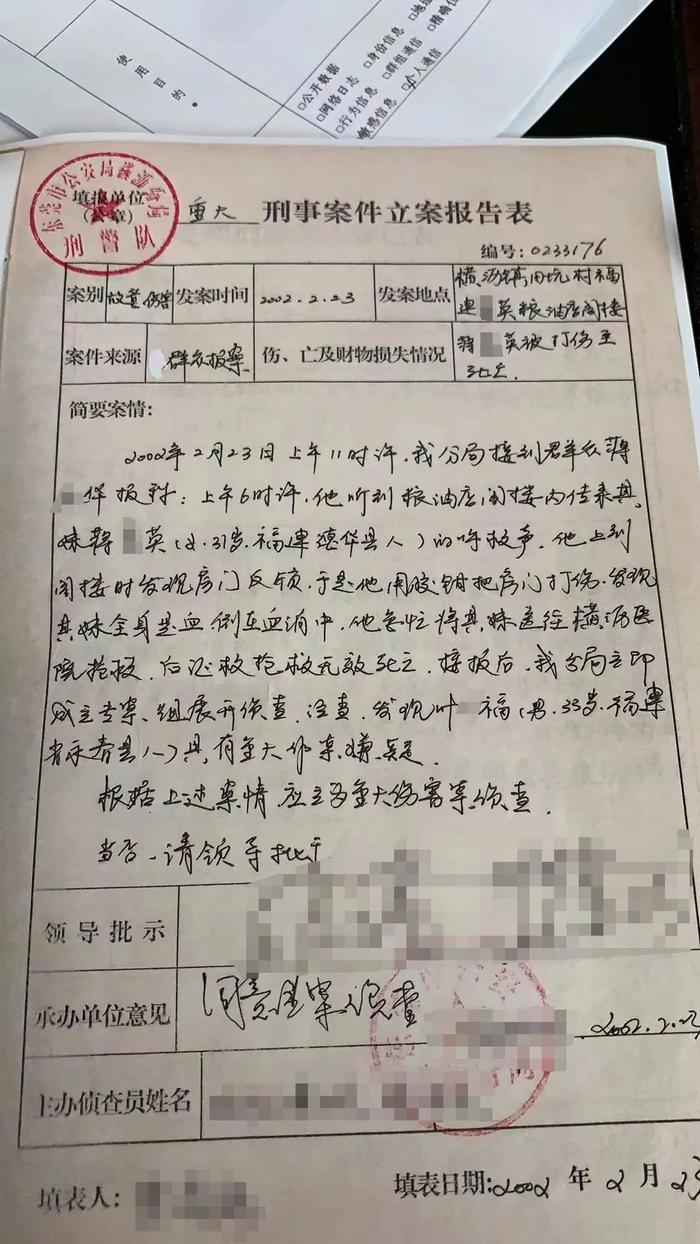 使用目的。
□公开数据
□网络日志 □身份信息
□行为信息 □群组通信
□个人通信
填报单位
（公章）
东莞市公安局横沥分局
刑警队
重大 刑事案件立案报告表
编号：0233176
案别 故意伤害 发案时间 2002.2.23 发案地点 横沥镇田坑村福
建 英粮油店阁楼
案件来源 群众报案 伤、亡及财物损失情况 蒋 英被打伤至
死亡.
简要案情：
2002年2月23日上午11时许，我分局接到群众蒋
华报称：上午6时许，他听到粮油店阁楼内传来其
妹蒋 英（女.31岁.福建德华县人）的呼救声.他上到
阁楼时发现房门反锁.于是他用胶钳把房门打伤.发现
其妹全身是血倒在血泊中.他急忙将其妹送往横沥医
院抢救.后证救抢救无效死亡.接报后，我分局立即
成立专案组展开侦查.注查.发现叶 福（男.33岁.福建
省永春县人）具有重大作案嫌疑.
根据上述案情 应立为重大伤害案侦查.
当否.请领导批示
领导批示
承办单位意见 同意立案侦查 2002.2.23
主办侦查员姓名
填表人： 填表日期：2002 年 2 月 23